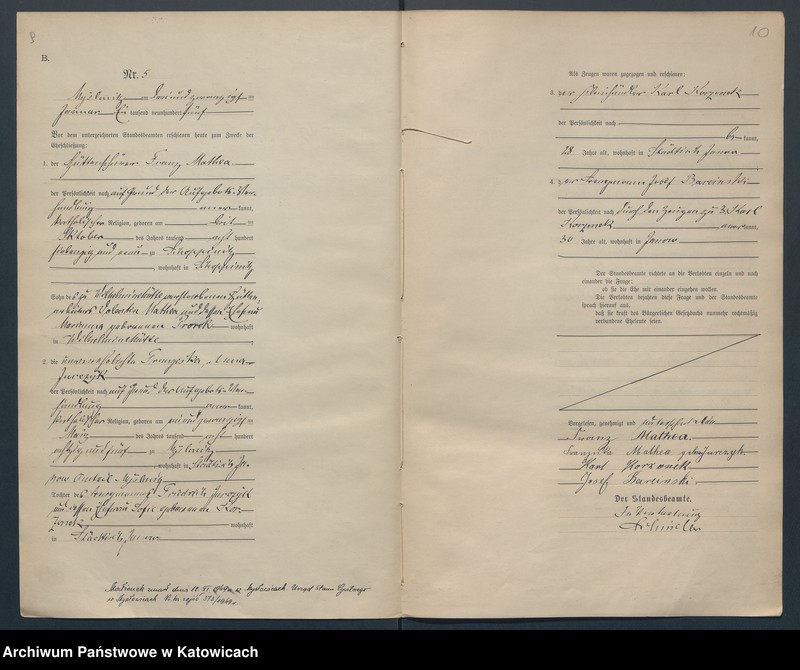 8
B.
Nr. 5
Myslowitz am dreiundzwanzigsten
Januar Ein tausend neunhundert fünf
Vor dem unterzeichneten Standesbeamten erschienen heute zum Zwecke der
Eheschließung:
1. der Franz Mathea
der Persönlichkeit nach auf Grund der Aufgebots-Ver-
handlung anerkannt,
katholischer Religion, geboren am
Oktober des Jahres tausend acht hundert
siebenzig und zu Schoppinitz
, wohnhaft in Schoppinitz
Sohn des zu Wilhelminehütte verstorbenen Hütten-
arbeiters Valentin Mathea und dessen Ehefrau
Marianna geborenen wohnhaft
in Wilhelminehütte
2. die unverehelichte Franziska
Jurczyk
der Persönlichkeit nach auf Grund der Aufgebots-Ver-
handlung anerkannt,
katholischer Religion, geboren am neunundzwanzigsten
März des Jahres tausend acht hundert
achtzig und fünf zu Myslowitz
, wohnhaft in Städtisch Ja-
now
Tochter des Bergmanns Friedrich Jurczyk
und dessen Ehefrau Sofie geborenen Kor-
wohnhaft
in Städtisch Janow
10
Als Zeugen waren zugezogen und erschienen:
3. der Karl Korzonek
der Persönlichkeit nach
be kannt,
28 Jahre alt, wohnhaft in Städtisch Janow
4. der Bergmann Josef Barcinski
der Persönlichkeit nach durch den Zeugen zu 3. Karl
Korzonek anerkannt,
30 Jahre alt, wohnhaft in Janow
Der Standesbeamte richtete an die Verlobten einzeln und nach
einander die Frage:
ob sie die Ehe mit einander eingehen wollen.
Die Verlobten bejahten diese Frage und der Standesbeamte
sprach hierauf aus,
daß sie kraft des Bürgerlichen Gesetzbuchs nunmehr rechtmäßig
verbundene Eheleute seien.
Vorgelesen, genehmigt und unterschrieben
Franz Mathea.
Franziska Mathea geb. Jurczyk
Karl Korzonek
Josef Barcinski
Der Standesbeamte.
In Vertretung
Małżonek zmarł dnia w Mysłowicach. Urząd Stanu Cywilnego
w Mysłowicach
Archiwum Państwowe w Katowicach